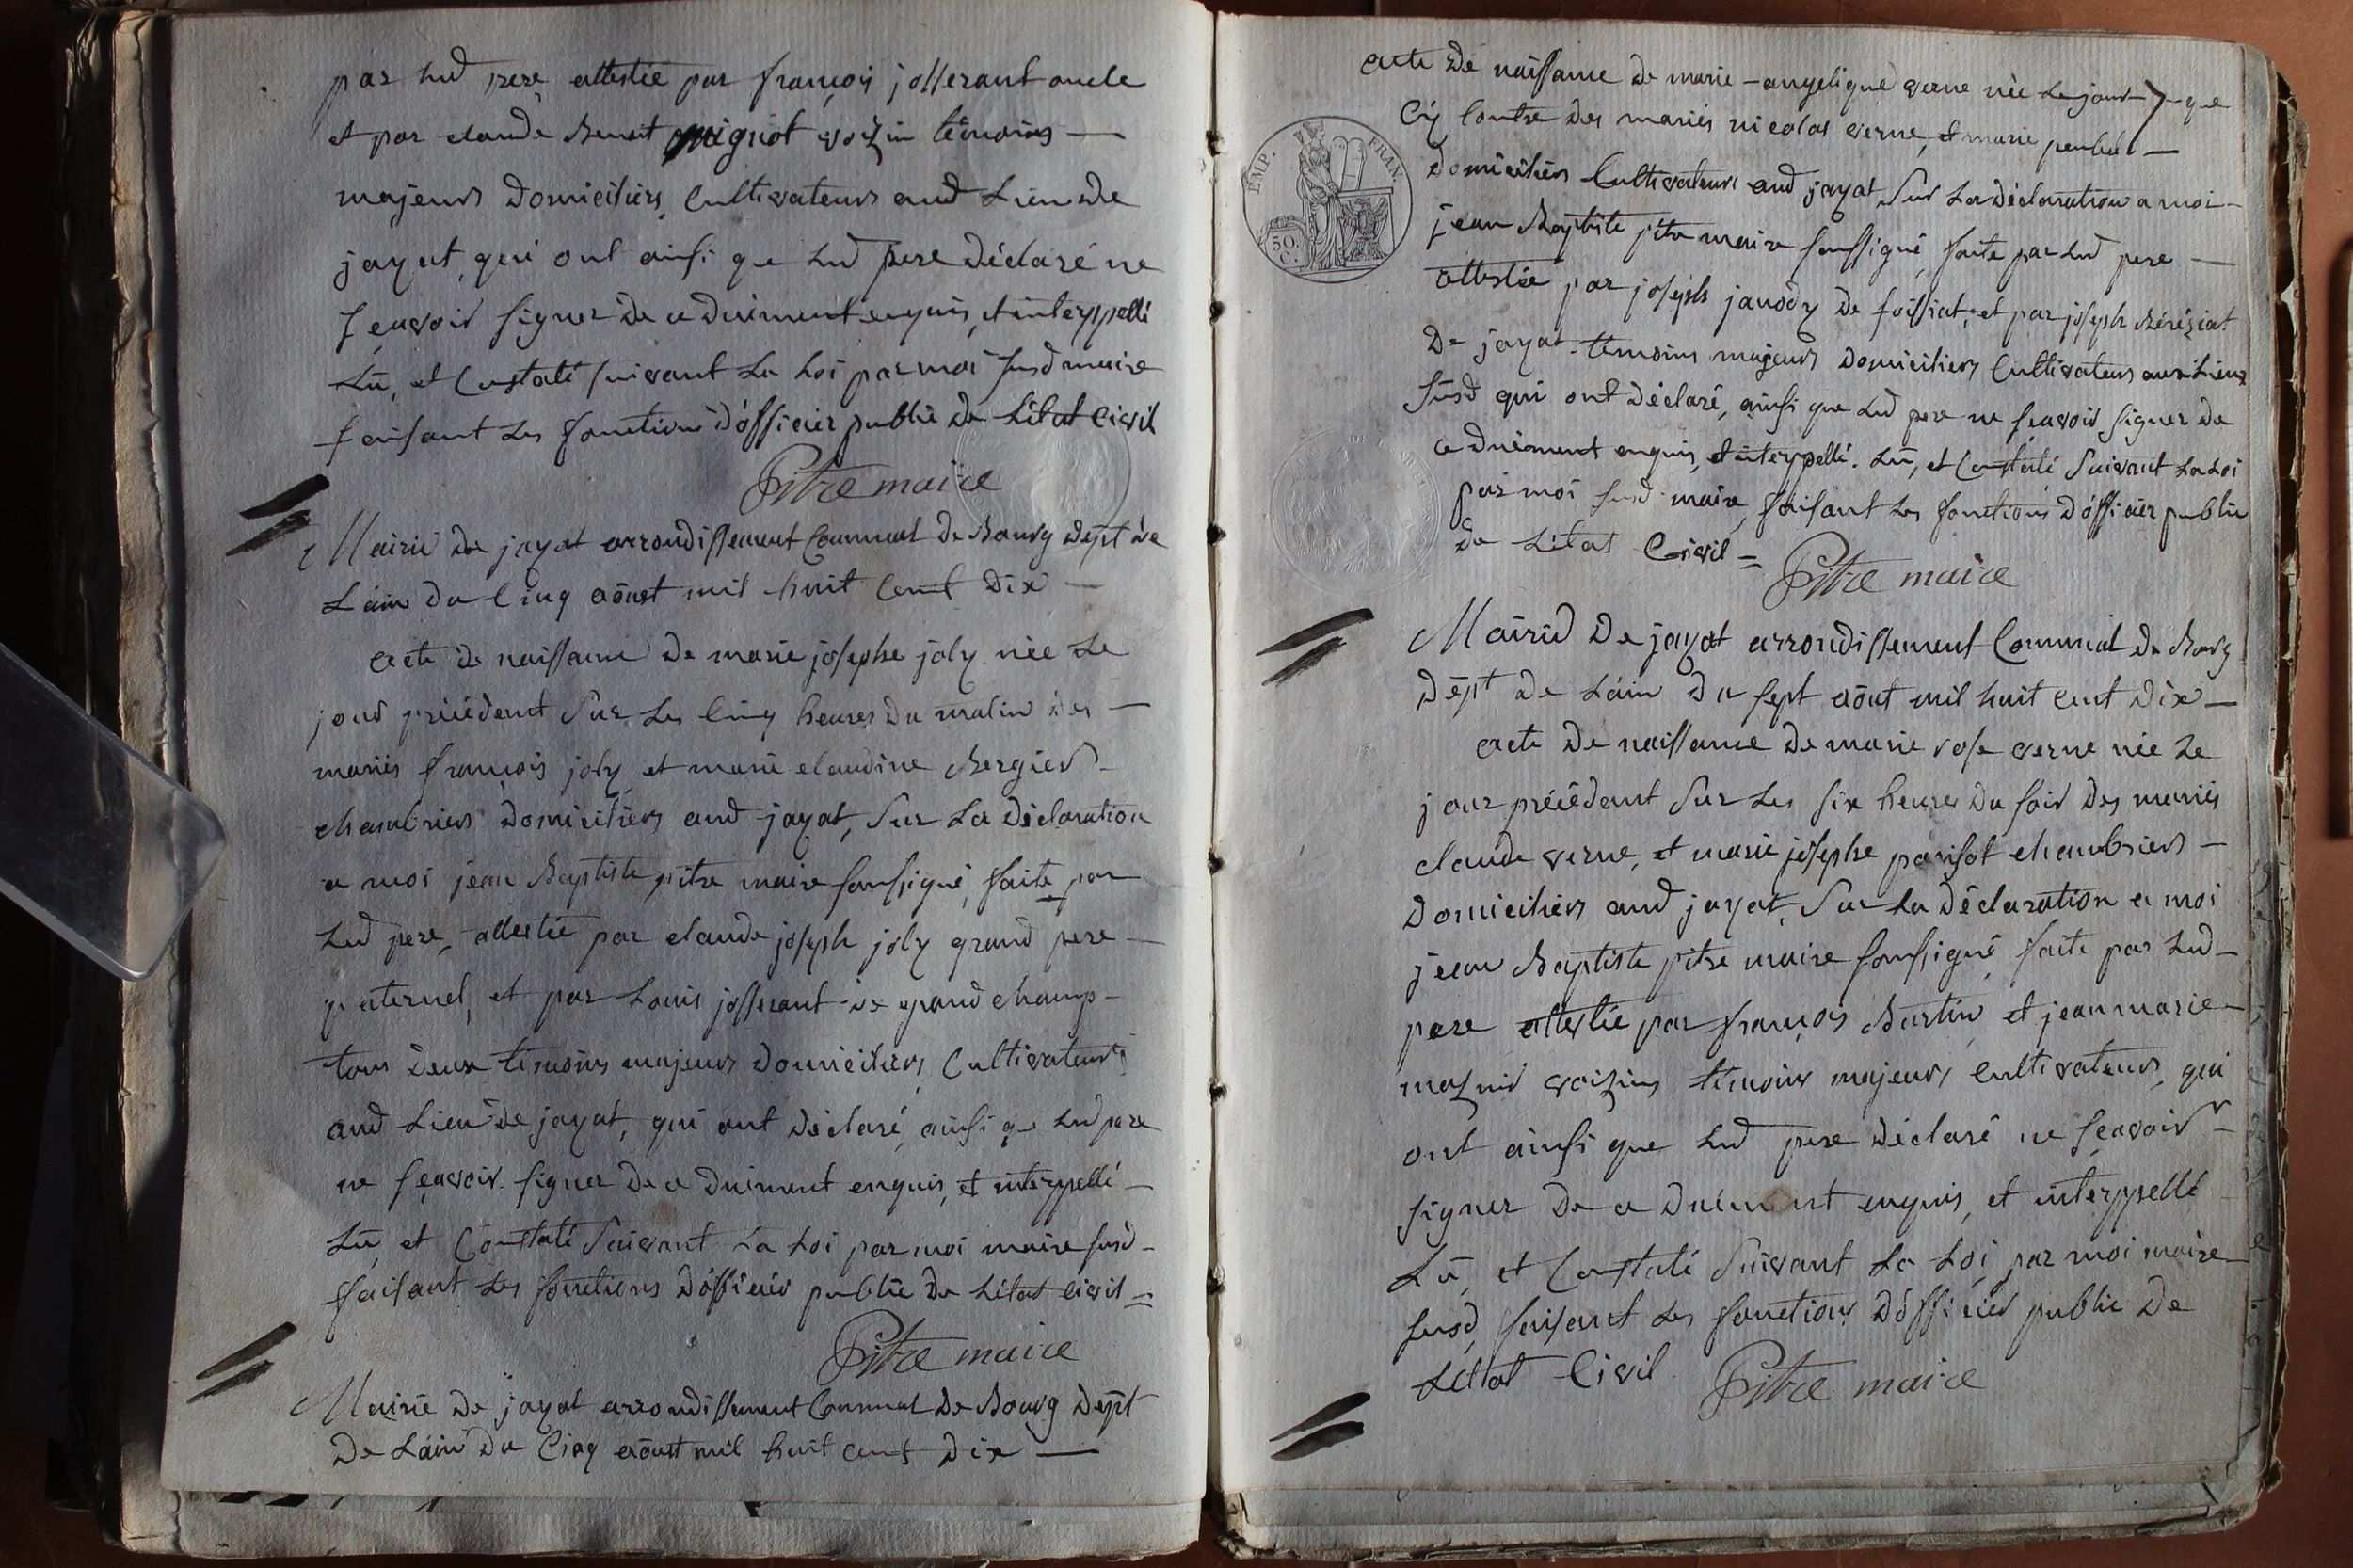 par lud pere attestée par françois josserant oncle
et par claude Benoit voizin témoins —
majeurs domiciliers, Cultivateurs aud Lieu de
jayat, qui ont ainsi que Lud pere déclaré ne
sçavoir signer de ce duement enquis, et interppellé
Lū, et Constaté suivant La Loi par moi susd maire
faisant Les fonctions d'officier public de Létat Civil
Pitre maire
Mairie de jayat arrondissement Communal de Bourg dépt de
Láin du Cinq aôust mil huit Cent dix —
acte de naissance de marie josephe joly née Le
jour précédent Sur Les Cinq heures du matin des —
mariés françois joly et marie claudine Bergier —
chambriers domiciliers aud jayat, Sur La déclaration
a moi jean Baptiste pitre maire soussigné, faite par
Lud pere, attestée par claude joseph joly grand pere —
paternel, et par Louis josserant de grand champ —
tous deux témoins majeurs domiciliers, Cultivateurs
aud Lieu de jayat, qui ont déclaré, ainsi que Lud pere
ne sçavoir signer de ce duement enquis, et interppellé —
Lū, et Constaté Suivant La Loi par moi maire susd —
faisant Les fonctions d'officier public de Létat civil =
Pitre maire
Mairie de jayat arrondissement Communal de Bourg dépt
de Láin du Cinq aôust mil huit cent dix —
acte de naissance de marie - angelique verne née Le jour
des mariés nicolas verne, et marie
domiciliers Cultivateurs aud jayat, Sur La déclaration a moi —
jean Baptiste pitre maire soussigné, faite par Lud pere —
attestée par joseph janody de foissiat, et par joseph Béréziat
de jayat témoins majeurs domiciliers Cultivateurs aux Lieux
Susd qui ont déclaré, ainsi que Lud pere ne sçavoir signer de
ce duement enquis, et interppellé. Lū, et Constaté Suivant La Loi
par moi susd maire, faisant Les fonctions d'officier public
de Létat Civil = Pitre maire
EMP. FRAN.
50. C.
Mairie de jayat arrondissement Communal de Bourg
dépt de Láin du sept aôut mil huit cent dix —
acte de naissance de marie rose verne née Le
jour précédent Sur Les six heures du soir des mariés
claude verne, et marie josephe parisot chambriers —
domiciliers aud jayat, Sur La déclaration a moi
jean Baptiste pitre maire soussigné, faite par Lud —
pere attestée par françois Burtin et jean marie —
mazuir voizins témoins majeurs Cultivateurs, qui
ont ainsi que Lud pere déclaré ne sçavoir —
signer de ce duement enquis, et interppellé
Lū, et Constaté Suivant La Loi par moi maire
susd, faisant Les fonctions d'officier public de
Létat Civil Pitre maire